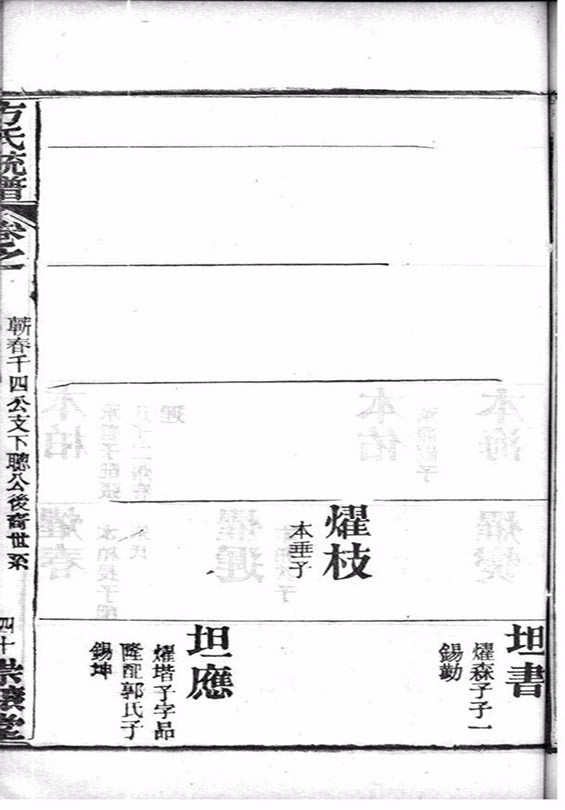 燿枝
本垂子
坦書
燿森子子一
錫勤
坦應
燿堦子字品
隆配郭氏子
錫坤
方氏統譜
卷之一
蘄春千四公支下聰公後裔世系
四十